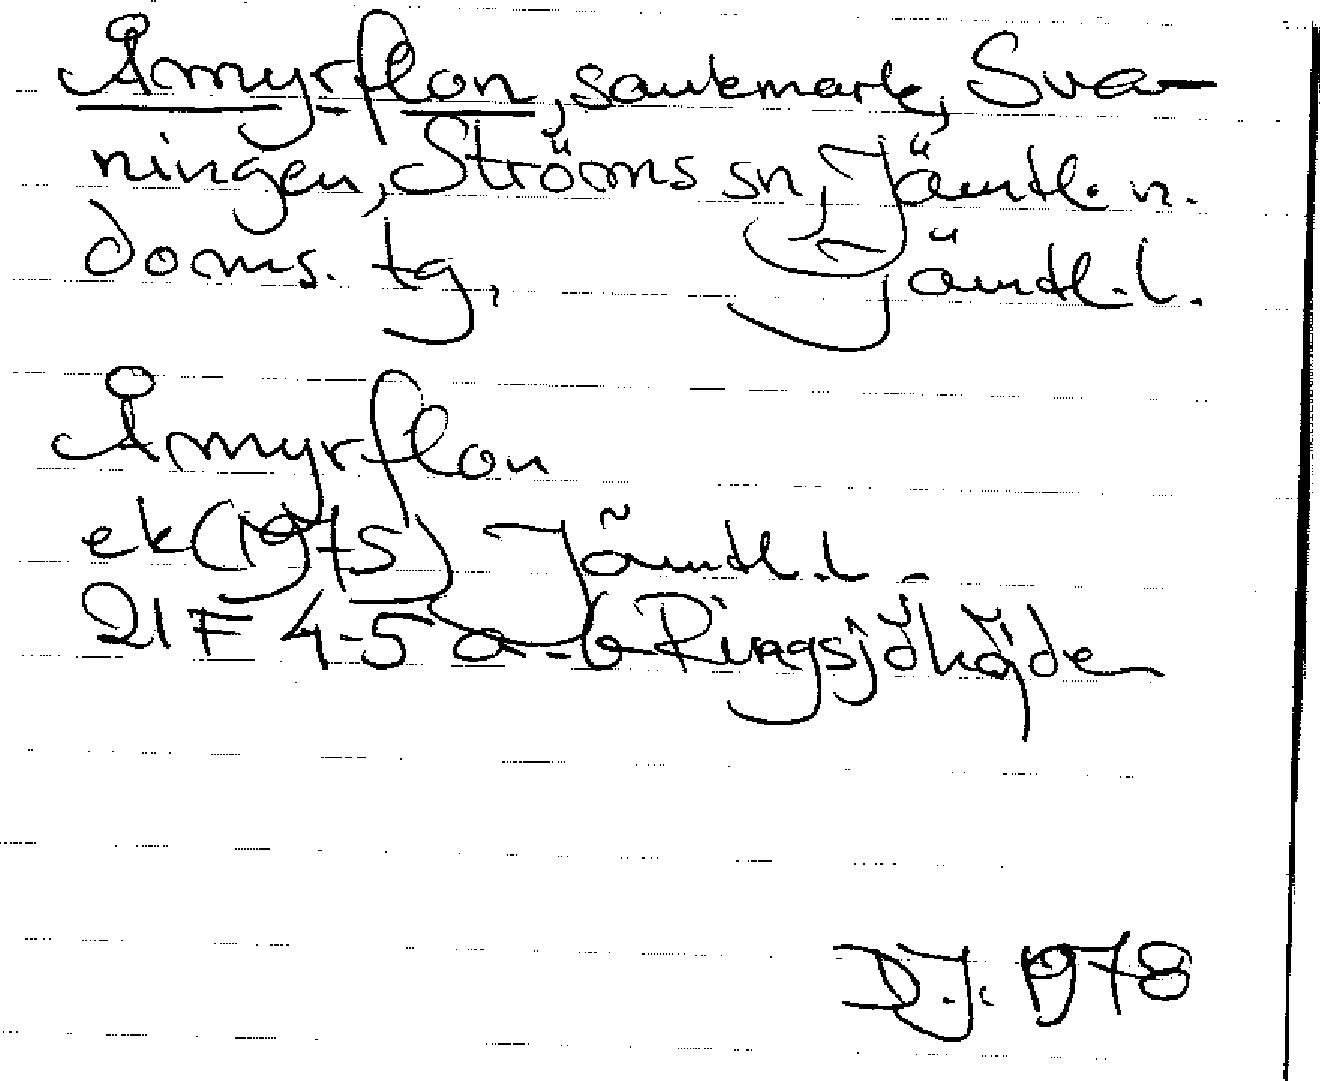 Åmyrflon, sankmark, Sva-
ningen, Ströms sn, Jämtl. n.
doms. tg, Jämtl. l.
Åmyrflon
ek (1975) Jämtl. l.
21 F 4-5 a-b Ringsjöhöjden
D.J. 1978